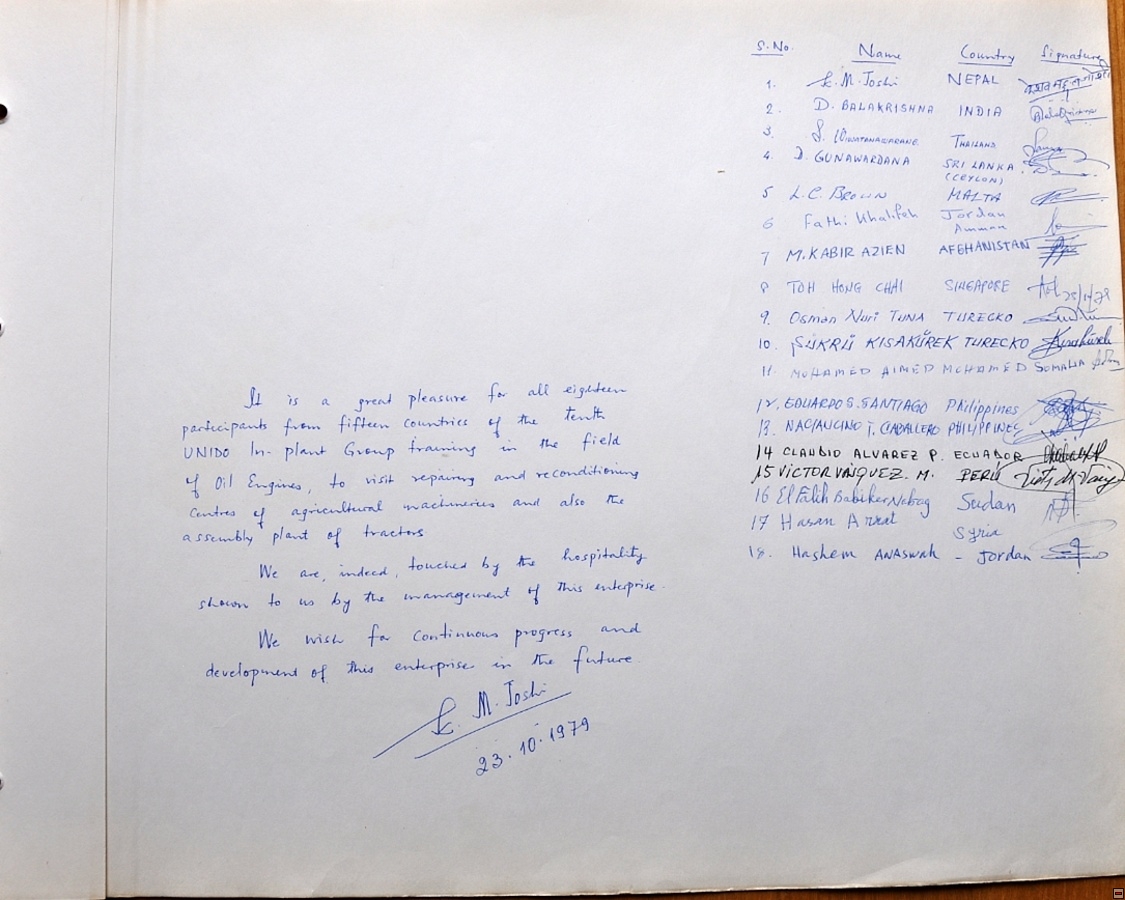 It is a great pleasure for all eighteen
participants from fifteen countries of the tenth
UNIDO In-plant Group training in the field
of Oil Engines, to visit repairing and reconditioning
centres of agricultural machineries and also the
assembly plant of tractors
We are, indeed, touched by the hospitality
shown to us by the management of this enterprise.
We wish for continuous progress and
development of this enterprise in the future.
K. M. Joshi
23.10.1979
S.No. Name Country Signature
1. K. M. Joshi NEPAL
2. D. BALAKRISHNA INDIA
3. S. THAILAND
4. D. GUNAWARDANA SRI LANKA
(CEYLON)
5 L.C. BROWN MALTA
6 Fathi Khalifeh Jordan
Amman
7 M. KABIR AZIEN AFGHANISTAN
8 TOH HONG CHAI SINGAPORE
9. Osman Nuri TUNA TURECKO
10. ŞÜKRÜ KISAKÜREK TURECKO
11. MOHAMED AHMED MOHAMED SOMALIA
12. EDUARDO S. SANTIAGO Philippines
13. T. CABALLERO PHILIPPINES
14 CLAUDIO ALVAREZ P. ECUADOR
15 VICTOR VASQUEZ. M. PERÚ
16 El Fatih Babiker Sudan
17 Hasan Syria
18. Hashem ANASWAH - Jordan